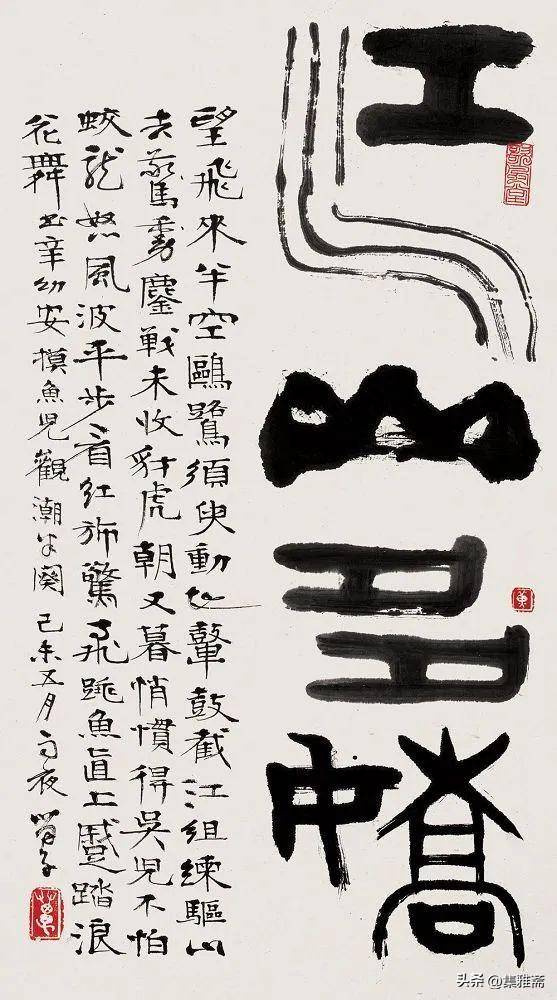 江山多嬌
望飛來半空鷗鷺須臾動地鼙鼓截江組練驅山
去驚動鏖戰未收虎朝又暮悄慣得吳兒不怕
蛟龍怒風波平步看紅旆驚飛跳魚直上蹙踏浪
花舞書辛幼安摸魚兒觀潮半闋己未五月雨夜
头条 @集雅斋